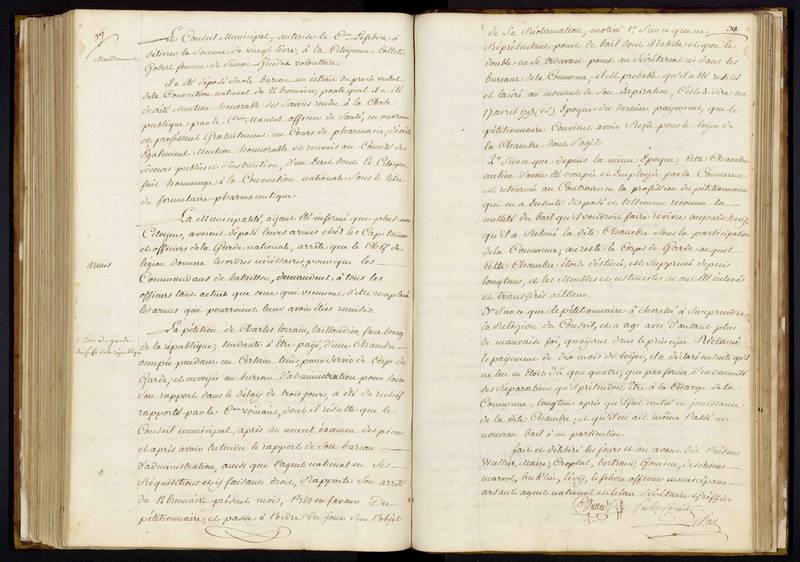 Le Conseil Municipal, autorise le C.en Lefebvre à
délivrer la Somme de vingt livre, à la Citoyenne Collette
Gobert femme de Simon Guedot volontaire.
il a été déposé sur le bureau un extrait du procès verbal
de la Convention national du 21 brumaire, par lequel il a été
décrété Mention honorable des Services rendu à la Chose
publique par le C.en Mandel officier de Santé, en ouvrant
et professant Gratuitement un Cours de pharmacie, décrète
Également Mention honorable et renvoi au Comité des
Secours publics et d'instruction, d'un Écrit dont le Citoyen
fait hommage à la Convention nationale Sous le titre
de formulaire pharmaceutique.
La Municipalité, aijant été informé que plusieurs
Citoyens, avoient déposé leurs armes chez les Capitaines
et officiers de la Garde national, arrête que le Chef de
légion donnera les ordres nécéssaires pour que les
Commandans de bataillon, demandent à tous les
officiers tant actuels que ceux qui viennent d'être remplacés
les armes qui pourroient leur avoir étées remises.
armes
La pétition de Charles lorrain, taillandier, faux bourg
de la république, tendante à être payé, d'une Chambre
occupée pendant un Certain tems, pour Servir de Corps de
Garde, et envoyée au bureau d'administration pour faire
Son rapport dans le délaij de trois jours, a été de rechef
rapporté par le C.en dont il résulte que le
Conseil municipal, après du nouvel éxamen des pièces
et après avoir Entendu le rapport de Son bureau
d'administration, ainsi que l'agent national en Ses
Réquisitions et ij faisant droit, Rapporte Son arrêté
du 12 brumaire présent mois, Pris en faveur Du
pétitionnaire, et passe à l'ordre du jour Sur l'objet
de Sa Réclamation, motivé 1.º Sur ce que ne
Représentant point de bail dont il Exhibe et que le
double ne Se trouvant point au Secrétariat ni dans les
bureaux de la Commune, il est probable qu'il a été resilié
et lacéré au moment de Son Expiration, C'est à dire au
17 avril 1793 (v.s.) Époque du dernier payement, que le
pétitionnaire Convient avoir Reçu pour le loyer de
la Chambre dont S'agit.
2.º Sur ce que depuis la même Époque, Cette Chambre
au lieu d'avoir été occupée et Employée par la Commune
est retourné au Contraire en la profession du pétitionnaire
qui en a Ensuite disposé et tellement reconnu la
nullité du bail qu'il voudroit faire revivre aujourd'hui,
qu'il a Reloué la dite Chambre Sans la participation
de la Commune, au reste le Corps de Garde auquel
Cette Chambre étoit destinée, est Supprimé depuis
longtems, et les Meubles et ustenciles en ont été Enlevés
et transférés ailleurs.
3.º Sur ce que le pétitionnaire à cherché à Surprendre
la Religion du Conseil, et a agi avec d'autant plus
de mauvaise foi, qu'aijant dans le principe Réclamé
le payement de dix mois de loyer, il a déclaré ensuite qu'il
ne lui en étoit dû que quatre, que pas forme d'indemnité
des Réparations qu'il prétendoit Être à la Charge de la
Commune, longtems après qu'il fut rentré en jouissance
de la dite Chambre, et qu'il en ait même Passé un
nouveau bail à un particulier.
fait et délibéré les jours et an avant dit Présens
Wallier, Maire, Cropsal, bertrand, Goussin,
marot, Lévij, lefebvre officiers municipaux
arsant agent national et Lelan Secrétaire Greffier